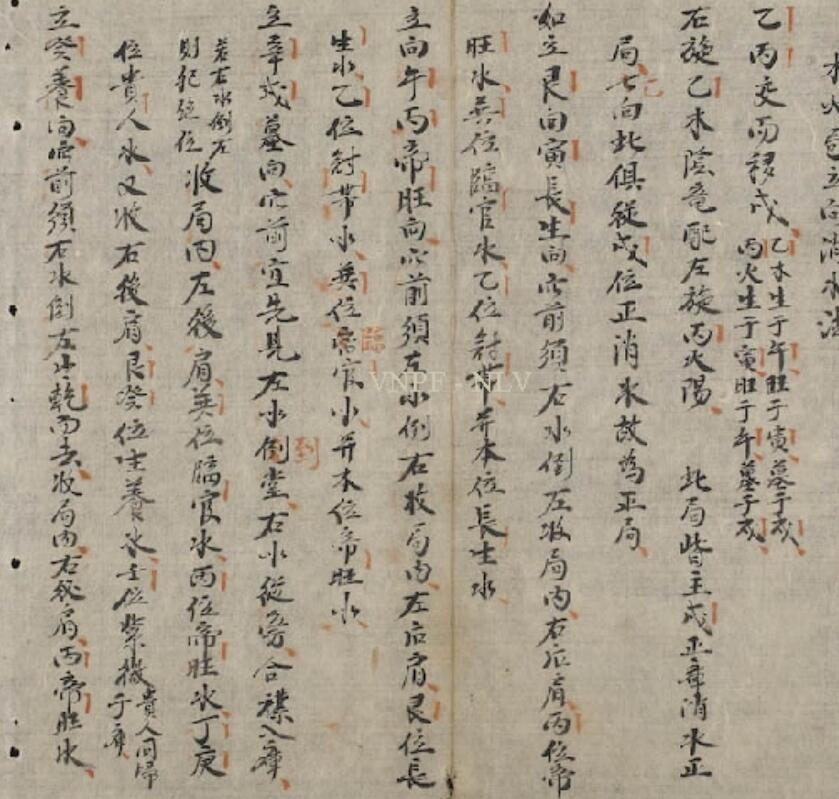 水火包立向消水法
乙丙交而移戌 乙木生于午旺于寅墓于戌 丙火生于寅旺于午墓于戌
右旋乙木陰竜配左旋丙火陽 此局皆主戌正庫消水正
局七向此俱從戌位正消水故為正局
如立艮向寅長生向此前須右水倒左收局內右后肩丙位帝
旺水巽位臨官水乙位冠帶并本位長生水
立向午丙帝旺向此前須左水倒右收局內左后肩艮位長
生水乙位冠帶水巽位臨官水并本位帝旺水
立辛戌墓向此前宜先見左水倒堂右水從旁合襟入庫
若右水倒左則犯絕位 收局內左後肩巽位臨官水丙位帝旺水丁庚
位貴人水又收右後肩艮癸位生養水壬位 貴人同歸于庫
立癸養向此前須右水倒左出乾而去收局內右後肩丙帝旺水
VNPF - NLV